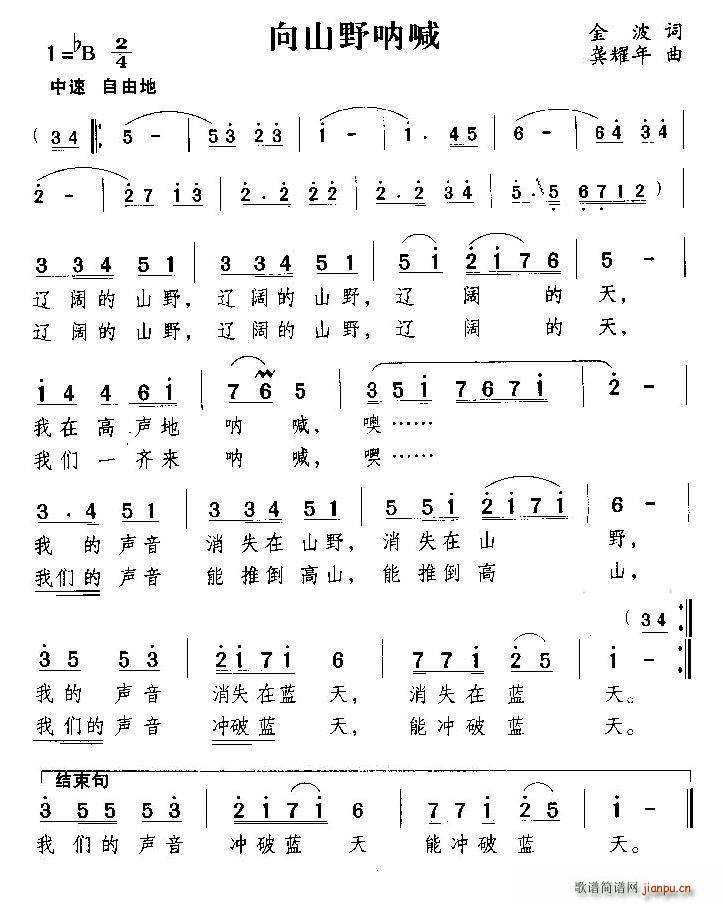 向山野呐喊
1=♭B 2/4
金 波 词
龚耀年 曲
中速 自由地
( 3 4 ‖: 5 - | 5 3 2 3 | 1 - | 1 . 4 5 | 6 - | 6 4 3 4 |
2 - | 2 7 1 3 | 2 . 2 2 2 | 2 . 2 3 4 | 5 . 5 6 7 1 2 ) |
3 3 4 5 1 | 3 3 4 5 1 | 5 1 2 1 7 6 | 5 - |
辽 阔的山野, 辽阔的山野, 辽 阔 的 天,
辽 阔的山野, 辽阔的山野, 辽 阔 的 天,
1 4 4 6 1 | 7 6 5 | 3 5 1 7 6 7 1 | 2 - |
我在高声地 呐 喊, 噢……
我们一齐来 呐 喊, 噢……
3 . 4 5 1 | 3 3 4 5 1 | 5 5 1 2 1 7 1 | 6 - |
我 的声音 消失在山野, 消失在山 野,
我们的声音 能推倒高山, 能推倒高 山,
( 3 4 :‖
3 5 5 3 | 2 1 7 1 6 | 7 7 1 2 5 | 1 - :‖
我的声音 消失在蓝 天, 消失在蓝 天。
我们的声音 冲破蓝 天, 能冲破蓝 天。
结束句
3 5 5 5 3 | 2 1 7 1 6 | 7 7 1 2 5 | 1 - ‖
我们的声音 冲破蓝 天 能冲破蓝 天。
歌谱简谱网
jianpu.cn